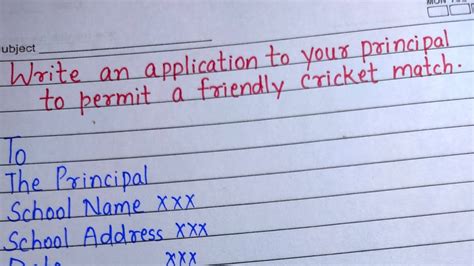 MON
ubject
Write an application to your principal
to permit a friendly cricket match.
To
The Principal
School Name xxx
School Address xxx
Date xxx